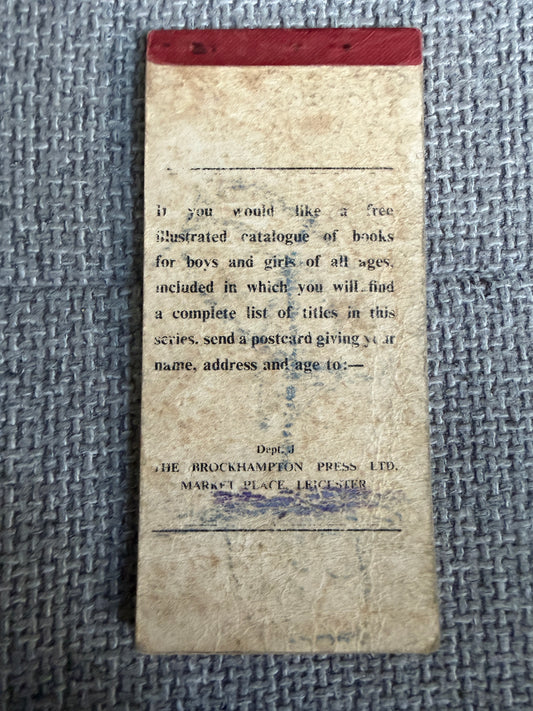 If you would like a free
illustrated catalogue of books
for boys and girls of all ages,
included in which you will find
a complete list of titles in this
series, send a postcard giving your
name, address and age to:—
Dept. J
THE BROCKHAMPTON PRESS LTD.
MARKET PLACE, LEICESTER